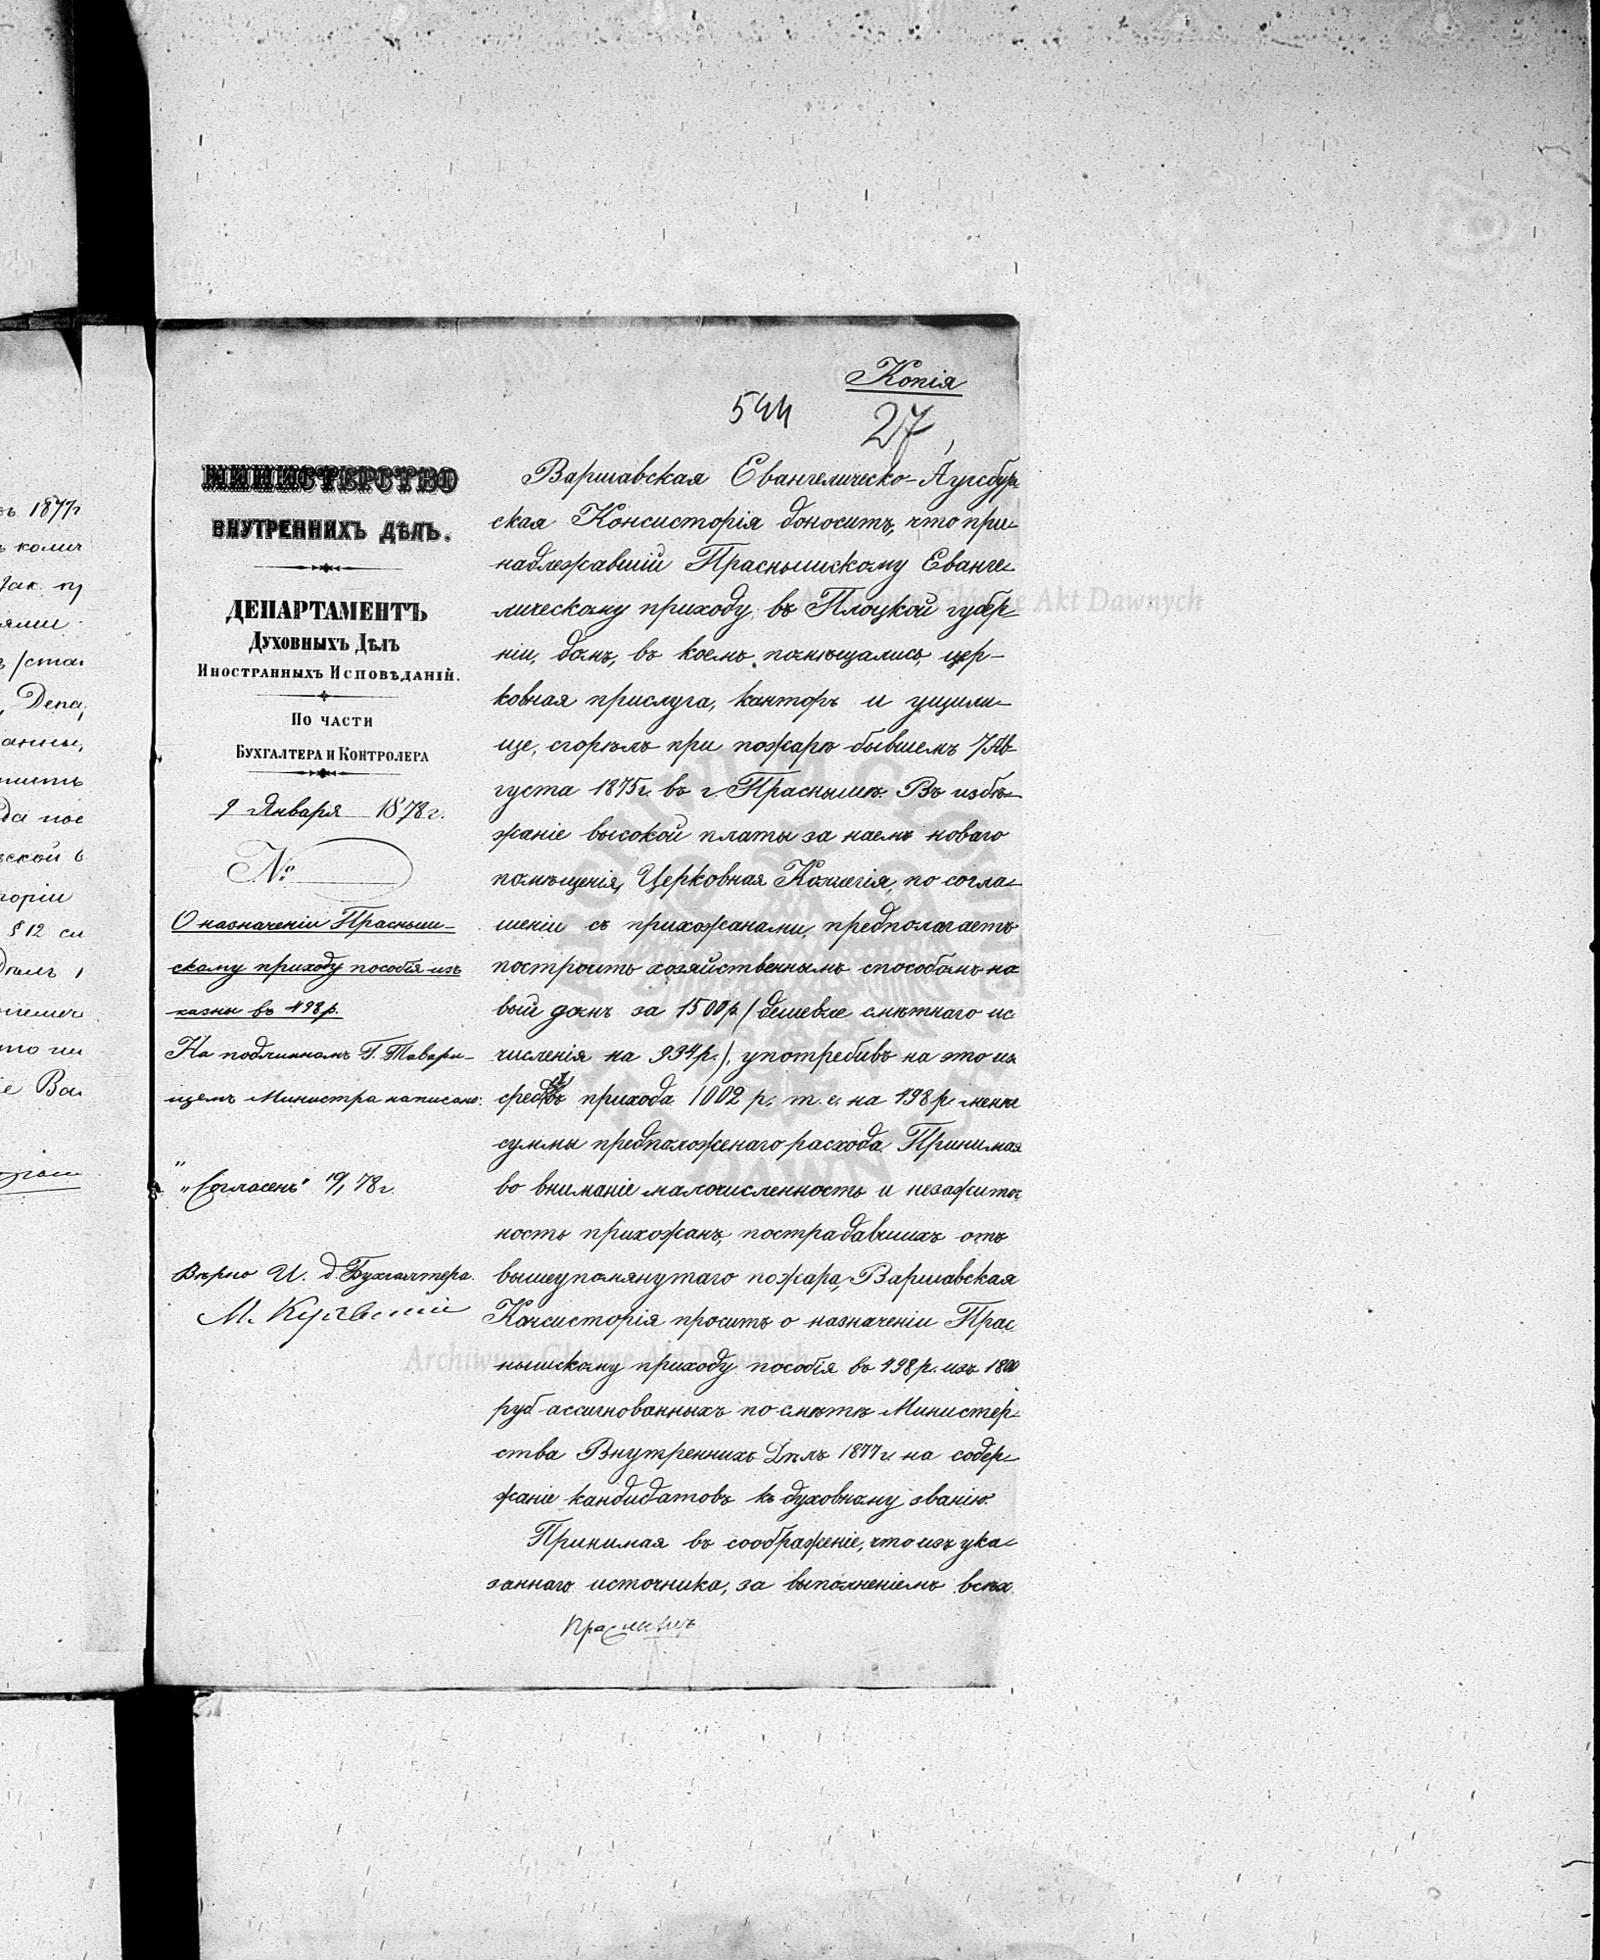 Копія
544
27
МИНИСТЕРСТВО
ВНУТРЕННИХЪ ДѢЛЪ.
ДЕПАРТАМЕНТЪ
ДУХОВНЫХЪ ДѢЛЪ
ИНОСТРАННЫХЪ ИСПОВѢДАНІЙ.
ПО ЧАСТИ
БУХГАЛТЕРА И КОНТРОЛЕРА
9 Января 1878 г.
№
О назначеніи Прасныш-
скому приходу пособія изъ
казны въ 498 р.
На подлинномъ Г. Товари-
щемъ Министра написано:
"Согласенъ" 10/1 78 г.
Вѣрно И. д. Бухгалтера
М.
Варшавская Евангелическо-Аугсбург
ская Консисторія доноситъ, что при-
надлежавшій Праснышскому Еванге-
лическому приходу въ Плоцкой губер-
ніи, домъ, въ коемъ помѣщались цер-
ковная прислуга, канторъ и училищ-
ще, сгорѣлъ при пожарѣ бывшемъ 7 Ав-
густа 1875 г. въ г. Праснышѣ. Въ избѣ-
жаніе высокой платы за наемъ новаго
помѣщенія, Церковная Коллегія, по согла-
шенію съ прихожанами, предполагаетъ
построить хозяйственнымъ способомъ но
вый домъ за 1500 р. (дешевле смѣтнаго ис
численія на 934 р.), употребивъ на это изъ
средствъ прихода 1002 р. т. е. на 498 р. менѣе
суммы предположеннаго расхода. Принимая
во вниманіе малочисленность и незажиточ
ность прихожанъ, пострадавшихъ отъ
вышеупомянутаго пожара, Варшавская
Консисторія проситъ о назначеніи Прас
нышскому приходу пособія въ 498 р. изъ 1800
руб. ассигнованныхъ по смѣтѣ Министер-
ства Внутреннихъ Дѣлъ 1877 г. на содер-
жаніе кандидатовъ къ духовному званію.
Принимая въ соображеніе, что изъ ука-
заннаго источника, за выполненіемъ всѣхъ
Archiwum Główne Akt Dawnych
Archiwum Główne Akt Dawnych